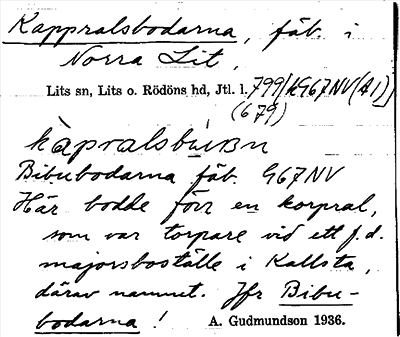 Kappralsbodarna, fäb. i
Norra Lit,
Lits sn, Lits o. Rödöns hd, Jtl. l. 799/k967NV(A1)
(679)
kàpralsbúʀɴ
Bibubodarna fäb. 967NV
Här bodde förr en korpral,
som var torpare vid ett f.d.
majorsboställe i Kallsta,
därav namnet. Jfr Bibu-
bodarna!
A. Gudmundson 1936.